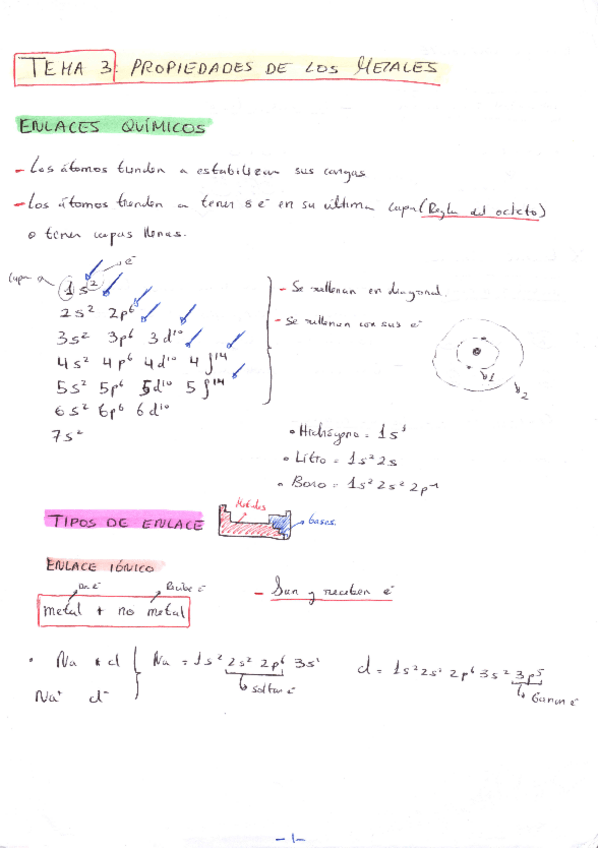 TEMA 3: PROPIEDADES DE LOS METALES
ENLACES QUÍMICOS
- Los átomos tienden a estabilizar sus cargas
- Los átomos tienden a tener 8 e⁻ en su última capa (Regla del octeto)
o tener capas llenas.
capa 1s² e⁻
2s² 2p⁶
3s² 3p⁶ 3d¹⁰
4s² 4p⁶ 4d¹⁰ 4f¹⁴
5s² 5p⁶ 5d¹⁰ 5f¹⁴
6s² 6p⁶ 6d¹⁰
7s²
- Se rellenan en diagonal.
- Se rellenan con sus e⁻
1
2
• Hidrógeno = 1s¹
• Litio = 1s² 2s
• Boro = 1s² 2s² 2p¹
TIPOS DE ENLACE
Metales
gases
ENLACE IÓNICO
Da e⁻ Recibe e⁻
metal + no metal
- Dan y reciben e⁻
• Na + Cl Na = 1s² 2s² 2p⁶ 3s¹ Cl = 1s² 2s² 2p⁶ 3s² 3p⁵
Na⁺ Cl⁻
soltar e⁻
Ganan e⁻
- 1 -